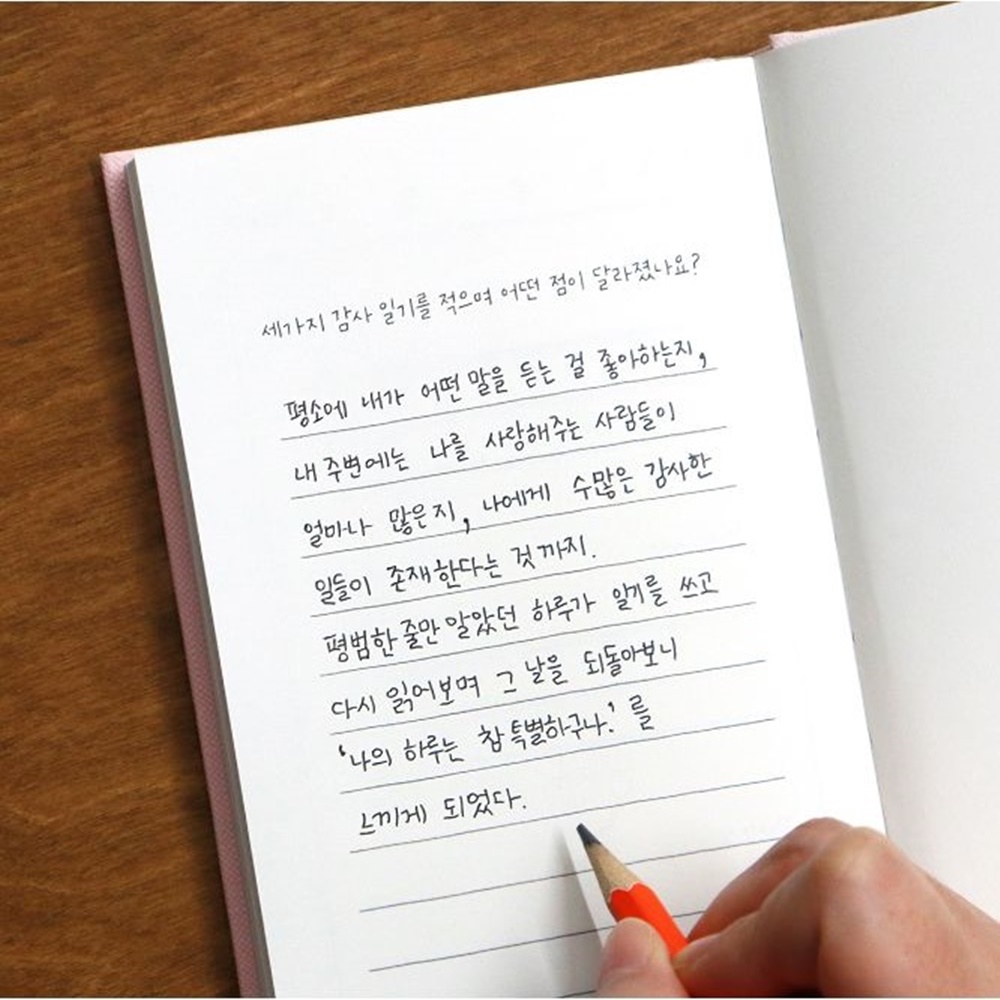 세가지 감사 일기를 적으며 어떤 점이 달라졌나요?
평소에 내가 어떤 말을 듣는 걸 좋아하는지,
내 주변에는 나를 사랑해주는 사람들이
얼마나 많은지, 나에게 수많은 감사한
일들이 존재한다는 것까지.
평범한 줄만 알았던 하루가 일기를 쓰고
다시 읽어보며 그 날을 되돌아보니
'나의 하루는 참 특별하구나.' 를
느끼게 되었다.